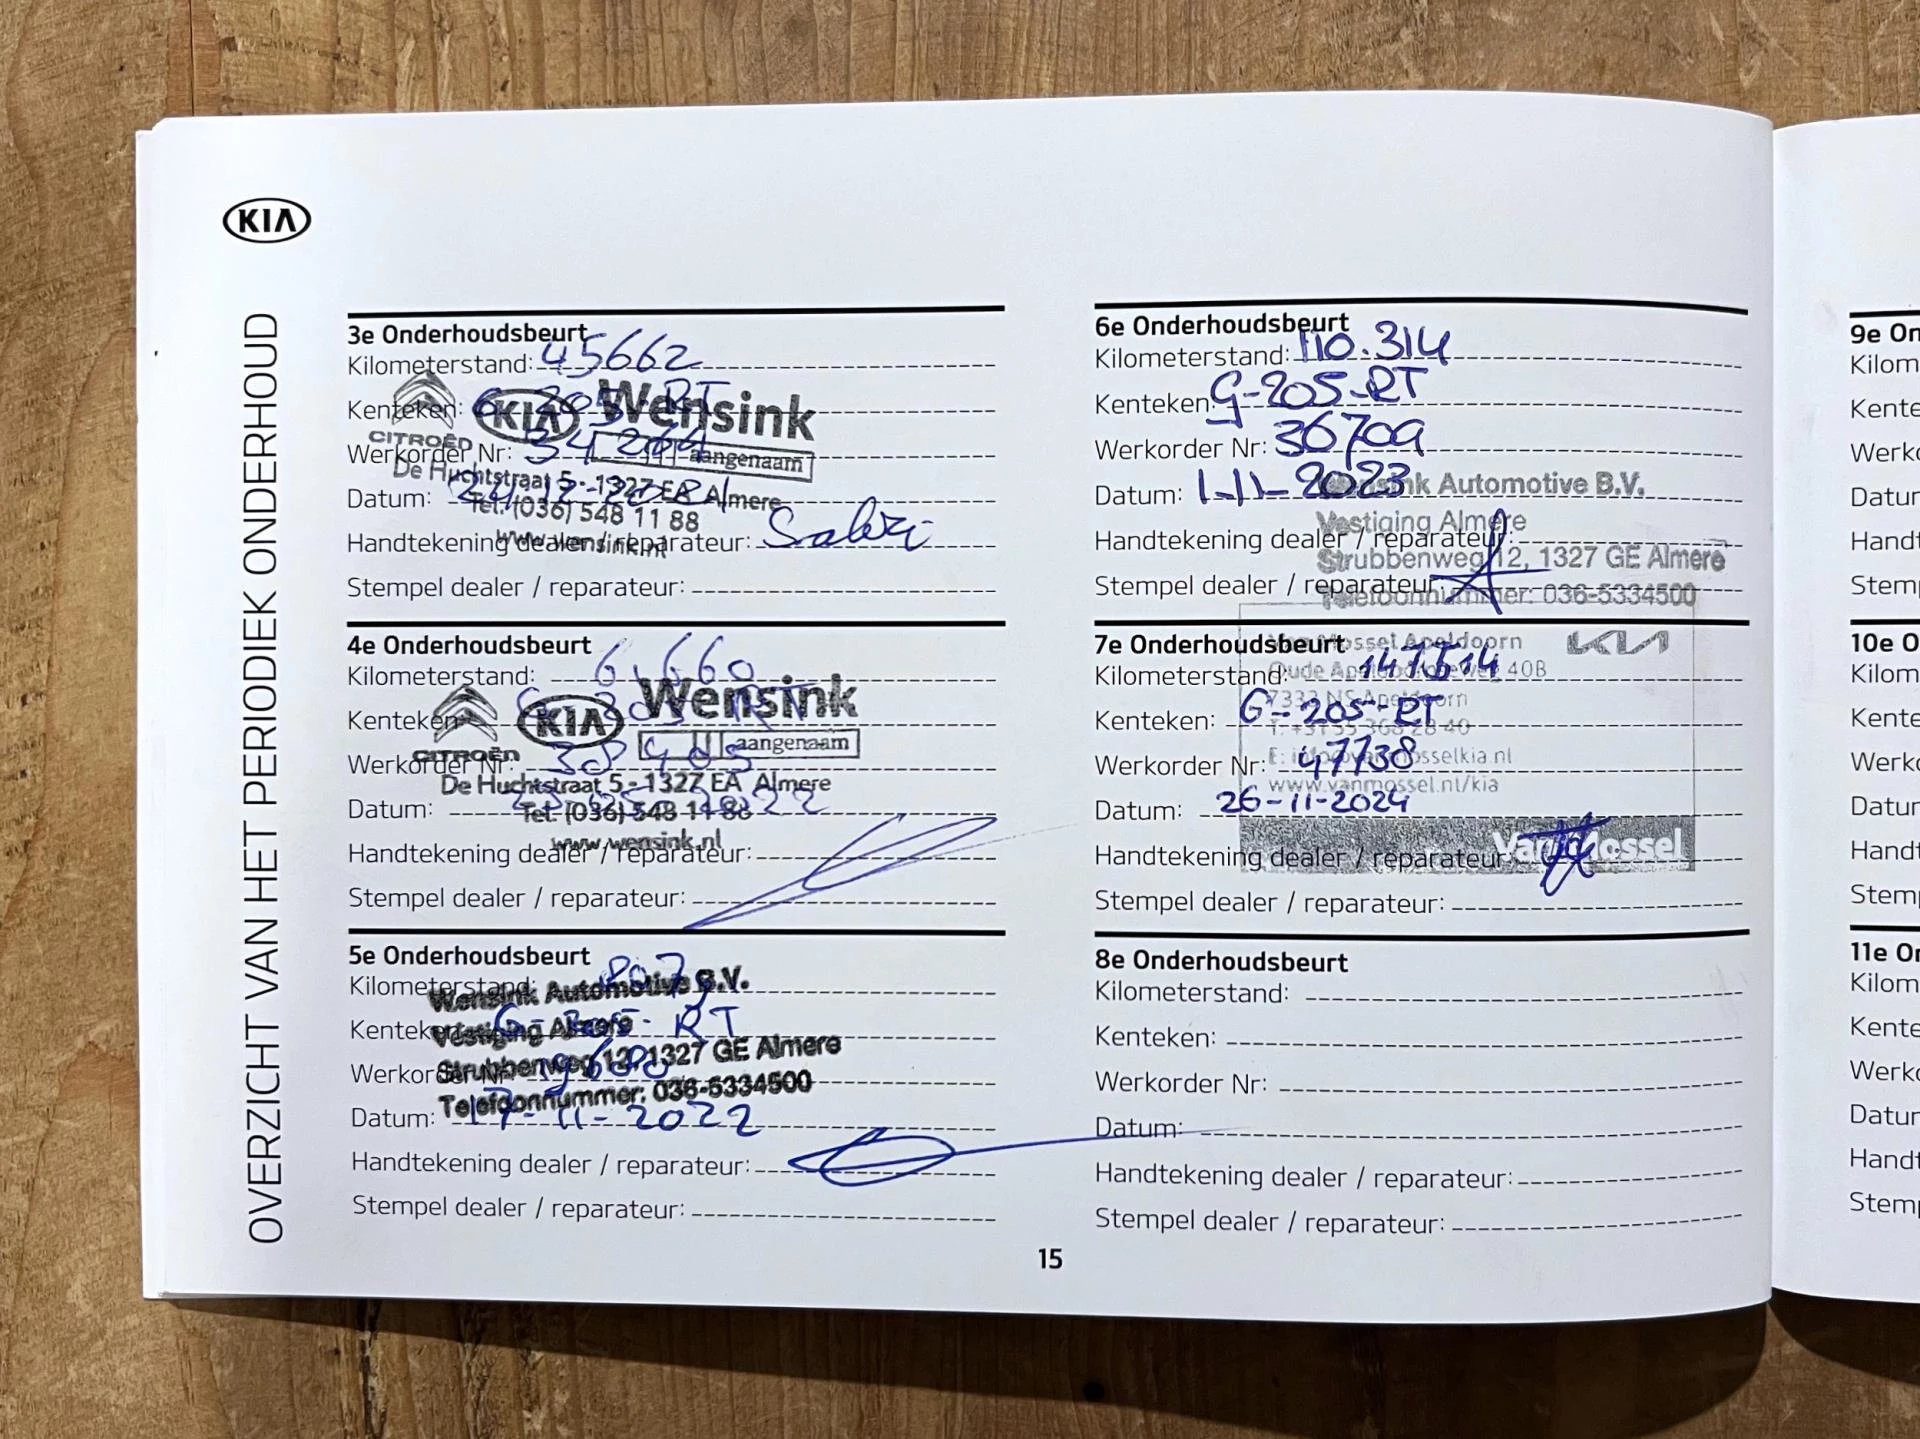 KIA
OVERZICHT VAN HET PERIODIEK ONDERHOUD
3e Onderhoudsbeurt
Kilometerstand: 45662
Kenteken: G-205-RT
Werkorder Nr: 34264
Datum:
Handtekening dealer / reparateur:
Stempel dealer / reparateur:
CITROËN KIA Wensink
aangenaam
De Huchtstraat 5 - 1327 EA Almere
Tel. (036) 548 11 88
www.wensink.nl
4e Onderhoudsbeurt
Kilometerstand: 61660
Kenteken: G 205 RT
Werkorder Nr: 38405
Datum:
Handtekening dealer / reparateur:
Stempel dealer / reparateur:
CITROËN KIA Wensink
aangenaam
De Huchtstraat 5 - 1327 EA Almere
Tel. (036) 548 11 88
www.wensink.nl
5e Onderhoudsbeurt
Kilometerstand:
Kenteken: G-205-RT
Werkorder Nr: 19680
Datum: 17-11-2022
Handtekening dealer / reparateur:
Stempel dealer / reparateur:
Wensink Automotive B.V.
Vestiging Almere
Strubbenweg 12, 1327 GE Almere
Telefoonnummer: 036-5334500
6e Onderhoudsbeurt
Kilometerstand: 110.314
Kenteken: G-205-RT
Werkorder Nr: 36709
Datum: 1-11-2023
Handtekening dealer / reparateur:
Stempel dealer / reparateur:
Wensink Automotive B.V.
Vestiging Almere
Strubbenweg 12, 1327 GE Almere
Telefoonnummer: 036-5334500
7e Onderhoudsbeurt
Kilometerstand: 147514
Kenteken: G-205-RT
Werkorder Nr: 47738
Datum: 26-11-2024
Handtekening dealer / reparateur:
Stempel dealer / reparateur:
Van Mossel Apeldoorn KIA
Oude Apeldoornseweg 40B
7333 NS Apeldoorn
T: +31 55 368 28 40
E: info@vanmosselkia.nl
www.vanmossel.nl/kia
Van Mossel
8e Onderhoudsbeurt
Kilometerstand:
Kenteken:
Werkorder Nr:
Datum:
Handtekening dealer / reparateur:
Stempel dealer / reparateur:
15
9e On
Kilom
Kente
Werko
Datur
Handt
Stemp
10e O
Kilom
Kente
Werko
Datur
Handt
Stemp
11e On
Kilom
Kente
Werko
Datur
Handt
Stemp